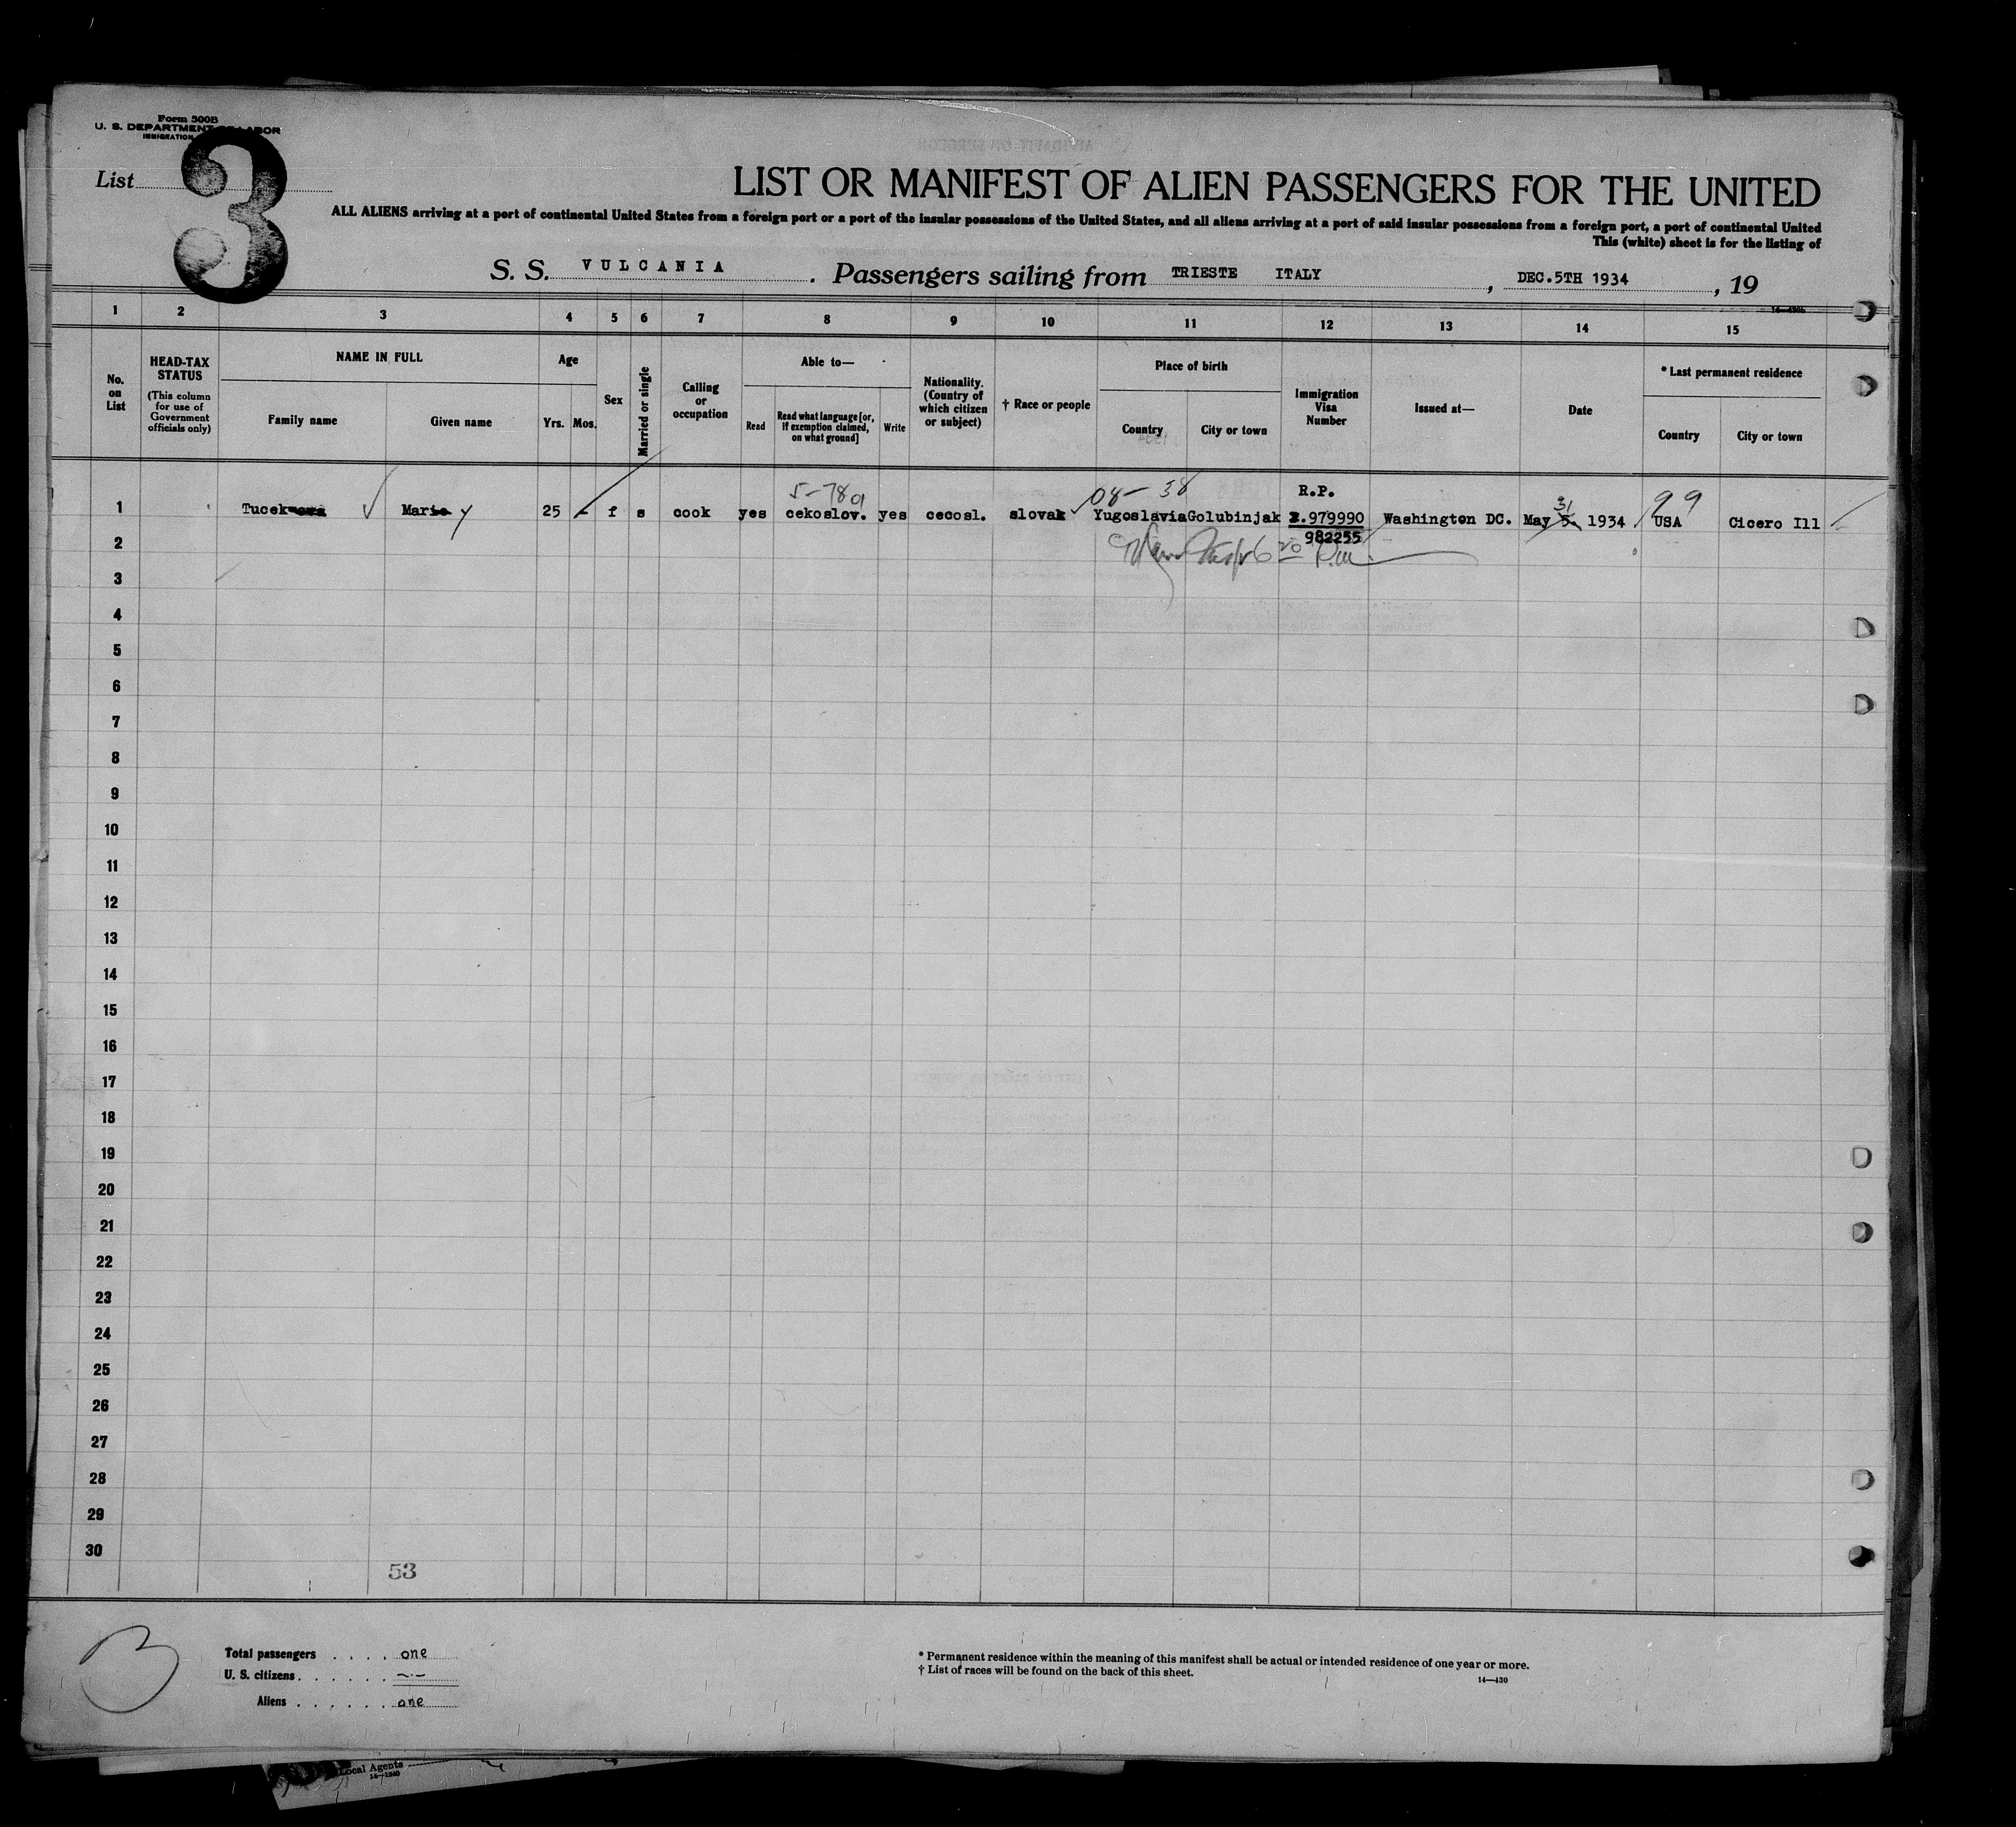 Form 500B
U. S. DEPARTMENT OF LABOR
IMMIGRATION
List 3
LIST OR MANIFEST OF ALIEN PASSENGERS FOR THE UNITED
ALL ALIENS arriving at a port of continental United States from a foreign port or a port of the insular possessions of the United States, and all aliens arriving at a port of said insular possessions from a foreign port, a port of continental United
This (white) sheet is for the listing of
S. S. VULCANIA . Passengers sailing from TRIESTE ITALY , DEC.5TH 1934 , 19
1 2 3 4 5 6 7 8 9 10 11 12 13 14 15
No. on List
HEAD-TAX STATUS
(This column for use of Government officials only)
NAME IN FULL
Family name
Given name
Age
Yrs.
Mos.
Sex
Married or single
Calling or occupation
Able to—
Read
Read what language [or, if exemption claimed, on what ground]
Write
Nationality. (Country of which citizen or subject)
† Race or people
Place of birth
Country
City or town
Immigration Visa Number
Issued at—
Date
* Last permanent residence
Country
City or town
5-78 08- 38 R.P. 31 99
1 Tucek Mary 25 f s cook yes cekoslov. yes cecosl. slovak Yugoslavia Golubinjak 979990 Washington DC. May 5 1934 USA Cicero Ill
982255
2
3
4
5
6
7
8
9
10
11
12
13
14
15
16
17
18
19
20
21
22
23
24
25
26
27
28
29
30
53
Total passengers . . . . one
U. S. citizens . . . . . . —
Aliens . . . . . . one
* Permanent residence within the meaning of this manifest shall be actual or intended residence of one year or more.
† List of races will be found on the back of this sheet.
14—430
Local Agents
14—1240